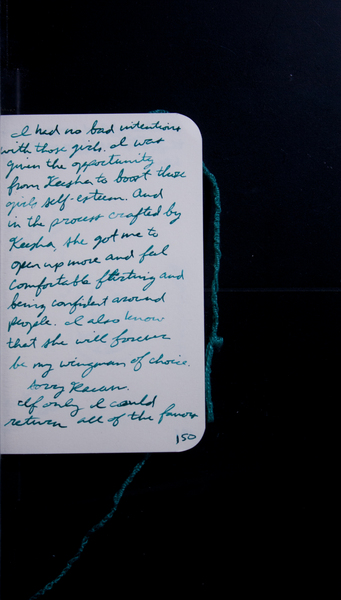 I had no bad intentions
with those girls. I was
given the opportunity
from Keisha to boost those
girls self-esteem. And
in the process crafted by
Keisha, she got me to
open up more and feel
comfortable flirting and
being confident around
people. I also know
that she will forever
be my wingman of choice.
Sorry
If only I could
return all of the favors
150